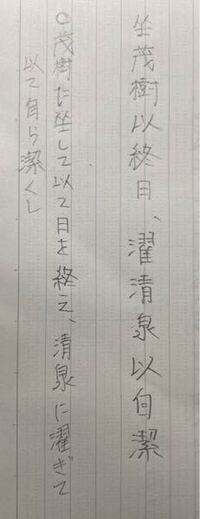 坐茂樹以終日、濯清泉以自潔
○茂樹に坐して以て日を終え、清泉に濯ぎて
以て自ら潔くし